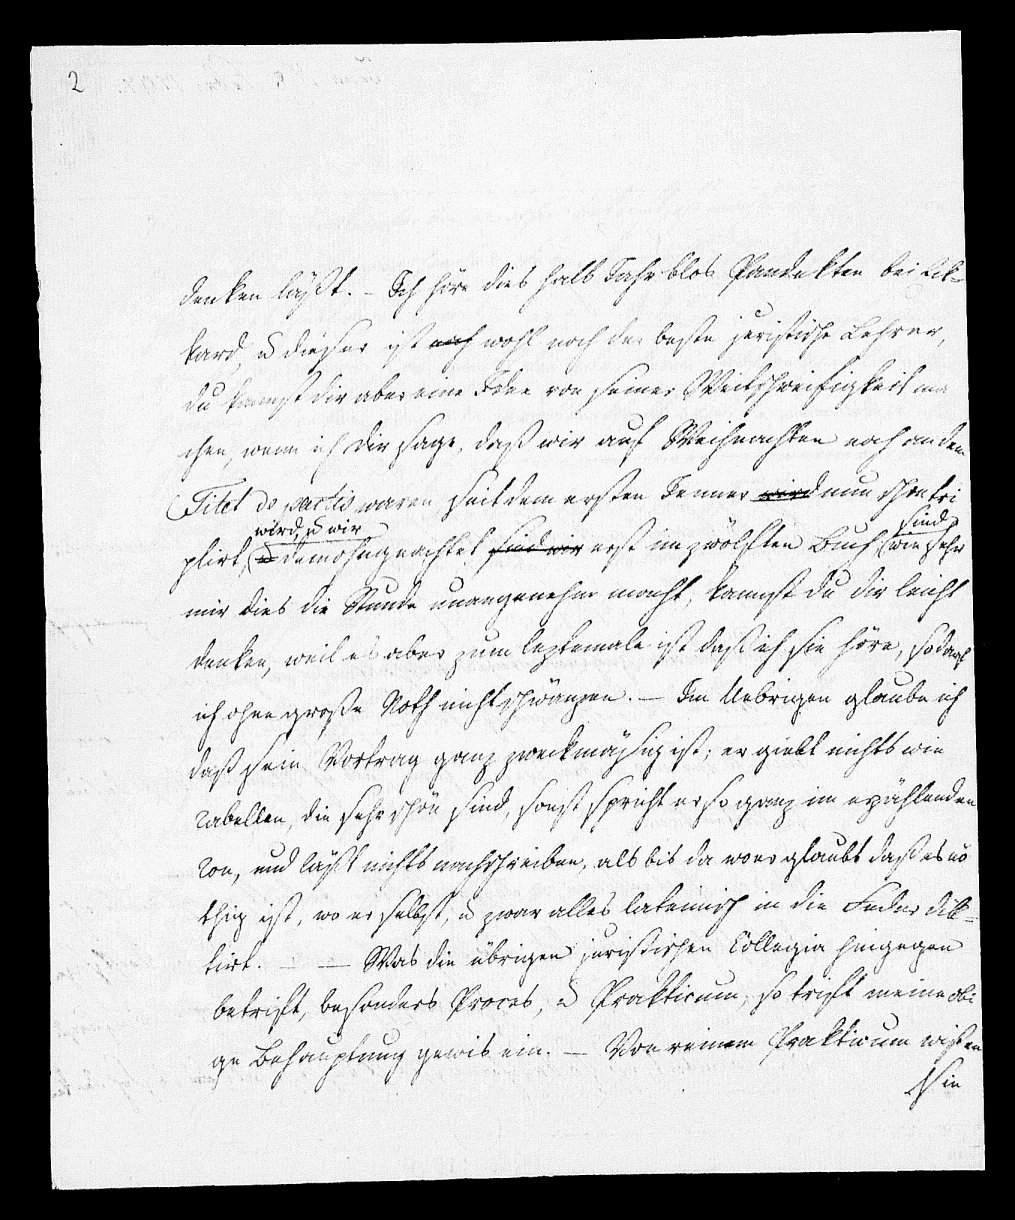 2
denken läßt. – Ich höre dies halb Jahr blos Pandekten bei Ek-
kard, u dieser ist auch wohl noch der beste juristische Lehrer,
du kannst dir aber eine Idee von seiner Weitschweifigkeit ma
chen, wenn ich dir sage, daß wir auf Weihnachten noch an dem
Titel de pactis waren, seit dem ersten Jenner wird nun schon tri
wird, u wir sind
plirt, u demohngeachtet sind wir erst im zwölften Buch, wie sehr
mir dies die Stunde unangenehm macht, kannst du dir leicht
denken, weil es aber zum leztemale ist daß ich sie höre, so darf
ich ohne große Noth nicht schwänzen. – Im Uebrigen glaube ich
daß sein Vortrag ganz zweckmäßig ist; er giebt nichts wie
Tabellen, die sehr schön sind, sonst spricht er so ganz im erzählenden
Ton, und läßt nichts nachschreiben, als bis da wo er glaubt daß es nö
thig ist, wo er selbst, u zwar alles lateinisch in die Feder dik-
tirt. – — Was die übrigen juristischen Collegia hingegen
betrift, besonders Proces, u Prakticum, so trift meine obi
ge Behauptung gewis ein. – Von einem Prakticum wißen
Sie